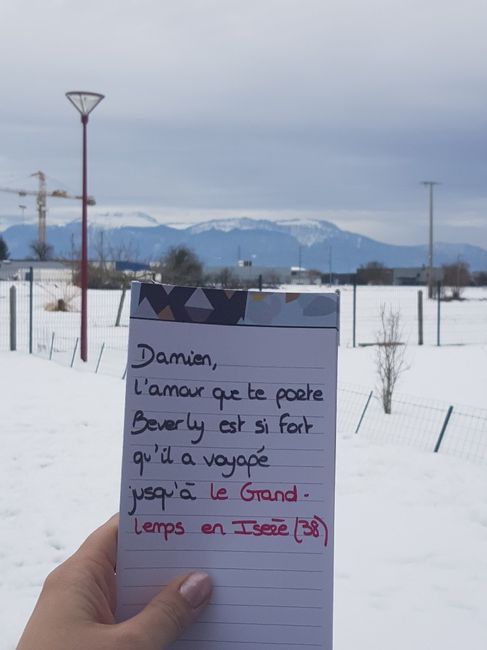 Damien,
l'amour que te porte
Beverly est si fort
qu'il a voyagé
jusqu'à le Grand-
lemps en Isère (38)